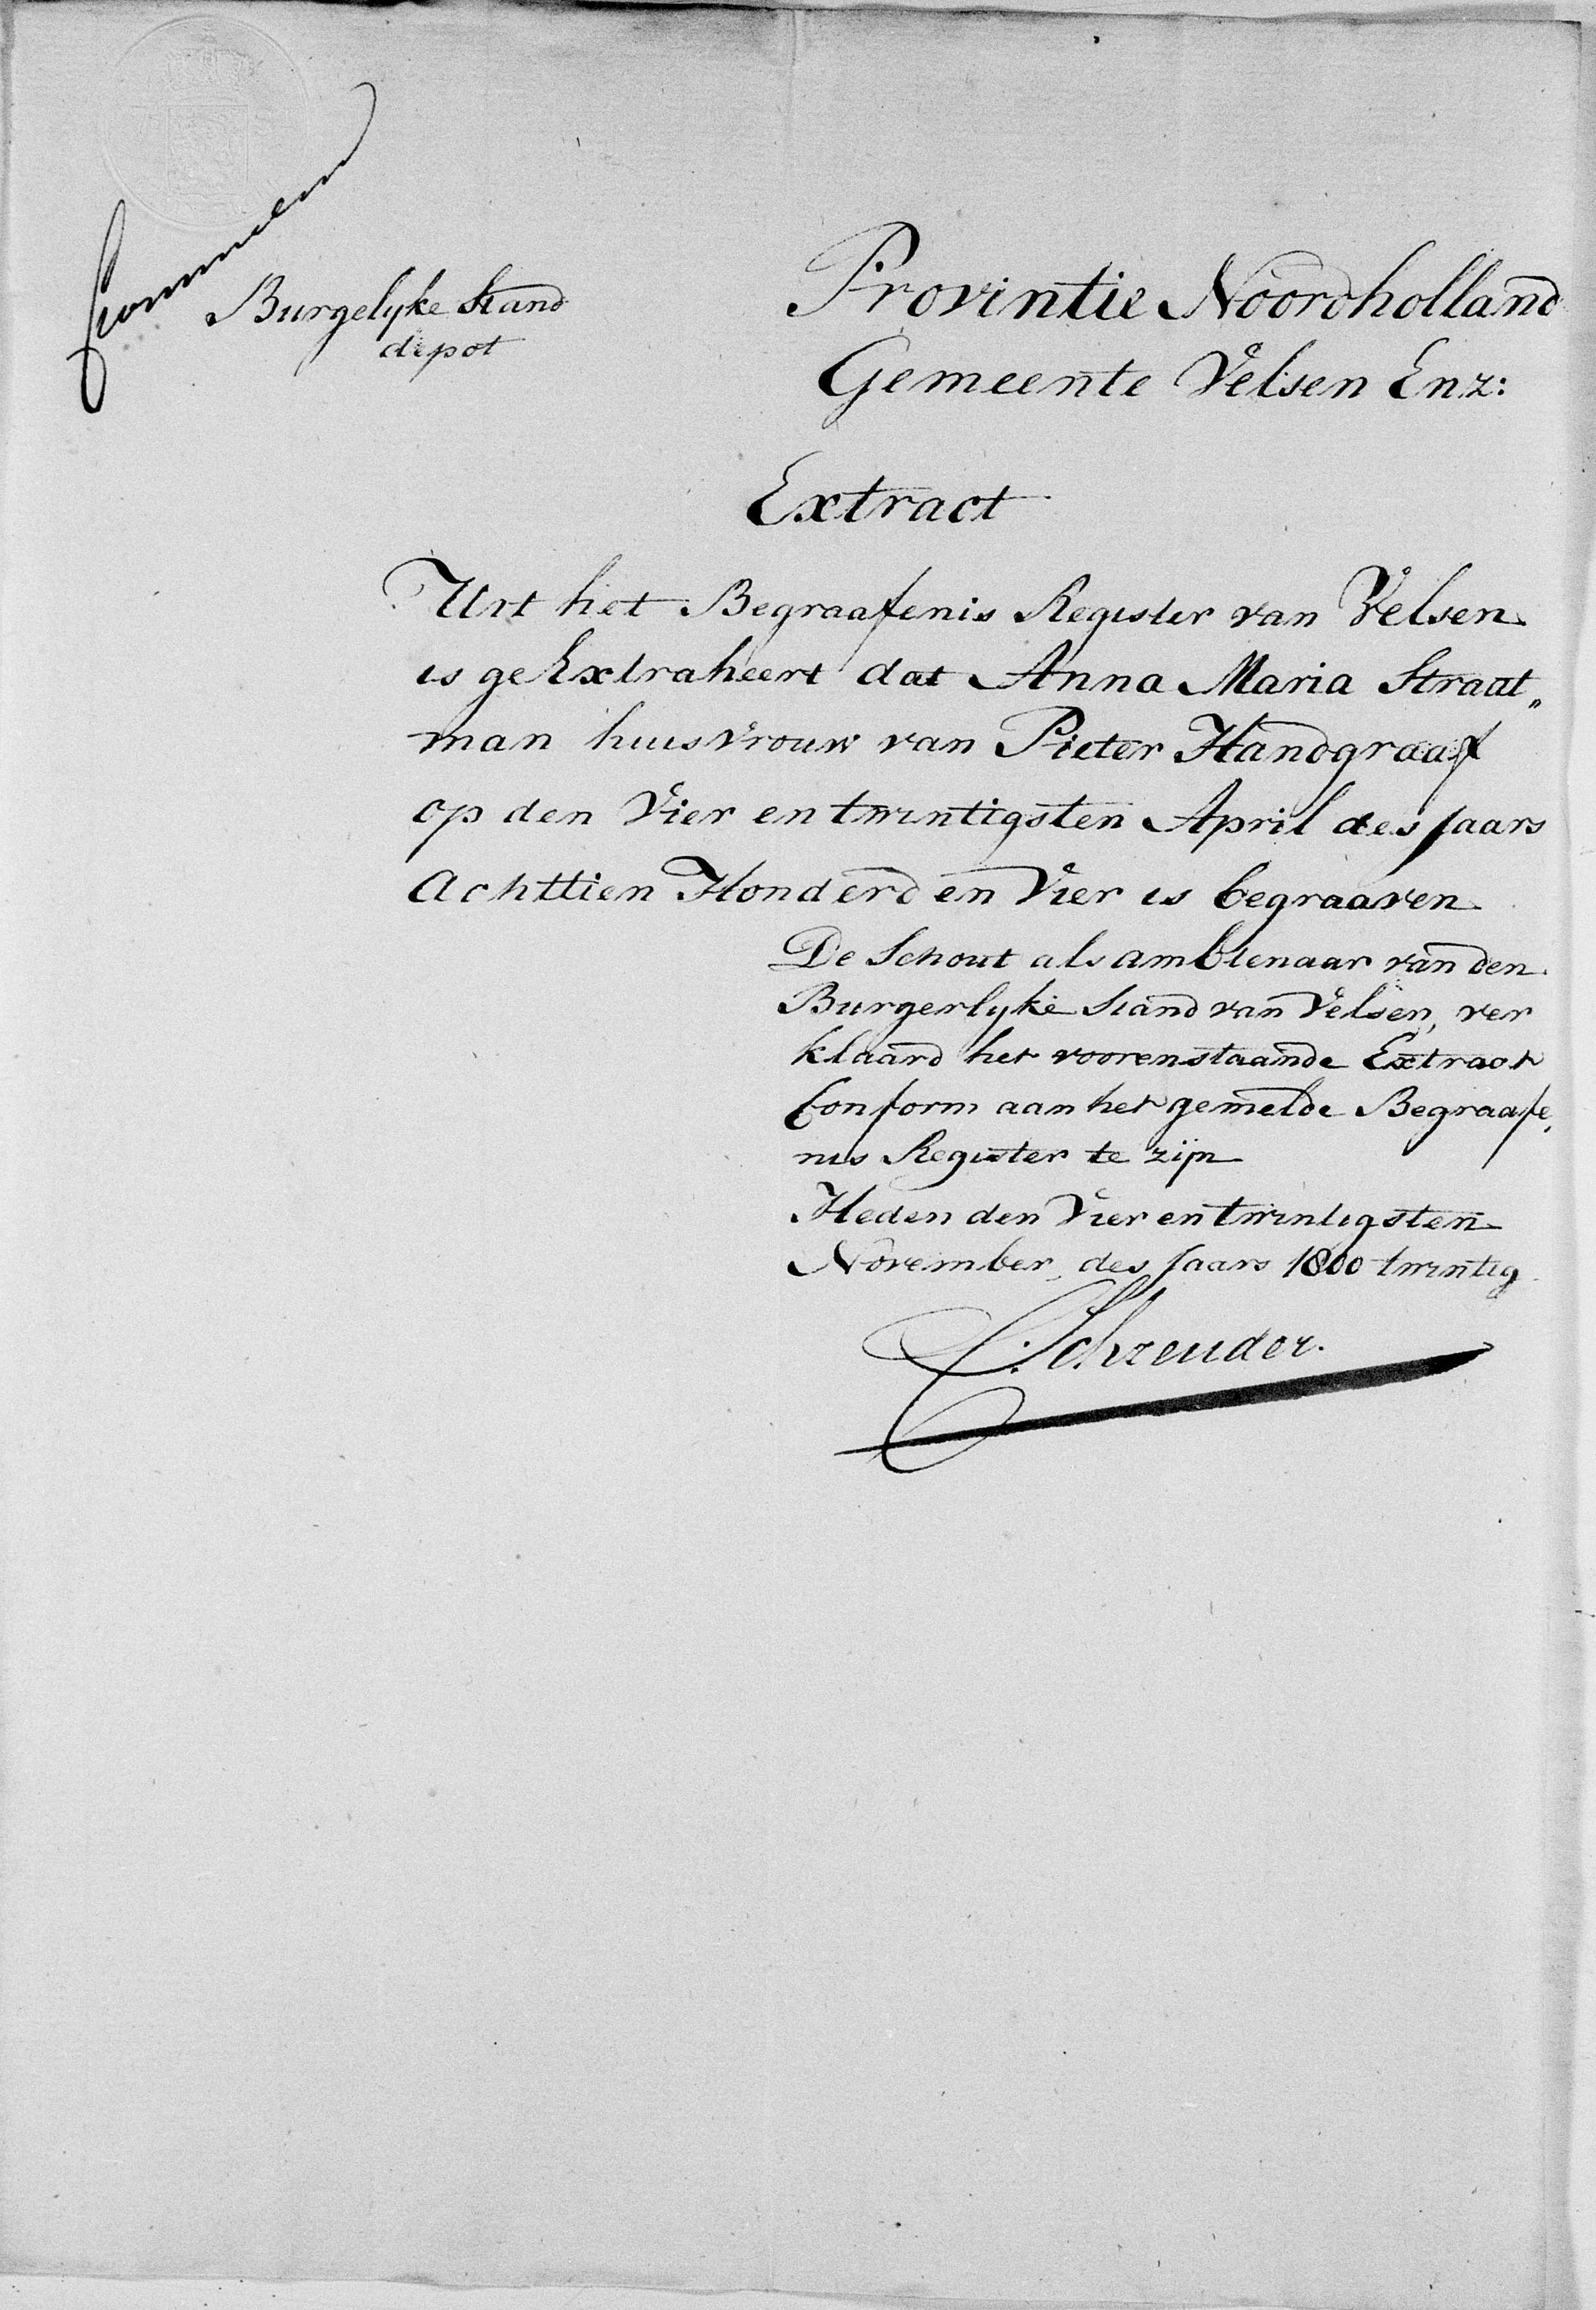 Burgelyke Stand
depot
Provintie Noordholland
Gemeente Velsen Enz:
Extract
Uit het Begraafenis Register van Velsen
is geExtraheert dat Anna Maria Straat„
man huisvrouw van Pieter Handgraaf
op den Vier en twintigsten April des Jaars
Achttien Honderd en Vier is begraaven
De Schout als ambtenaar van den
Burgerlyke Stand van Velsen, ver
klaard het voorenstaande Extract
Conform aan het gemelde Begraafe,
nis Register te zijn
Heden den Vier en twintigsten
November des Jaars 1800 twintig
Schreuder.